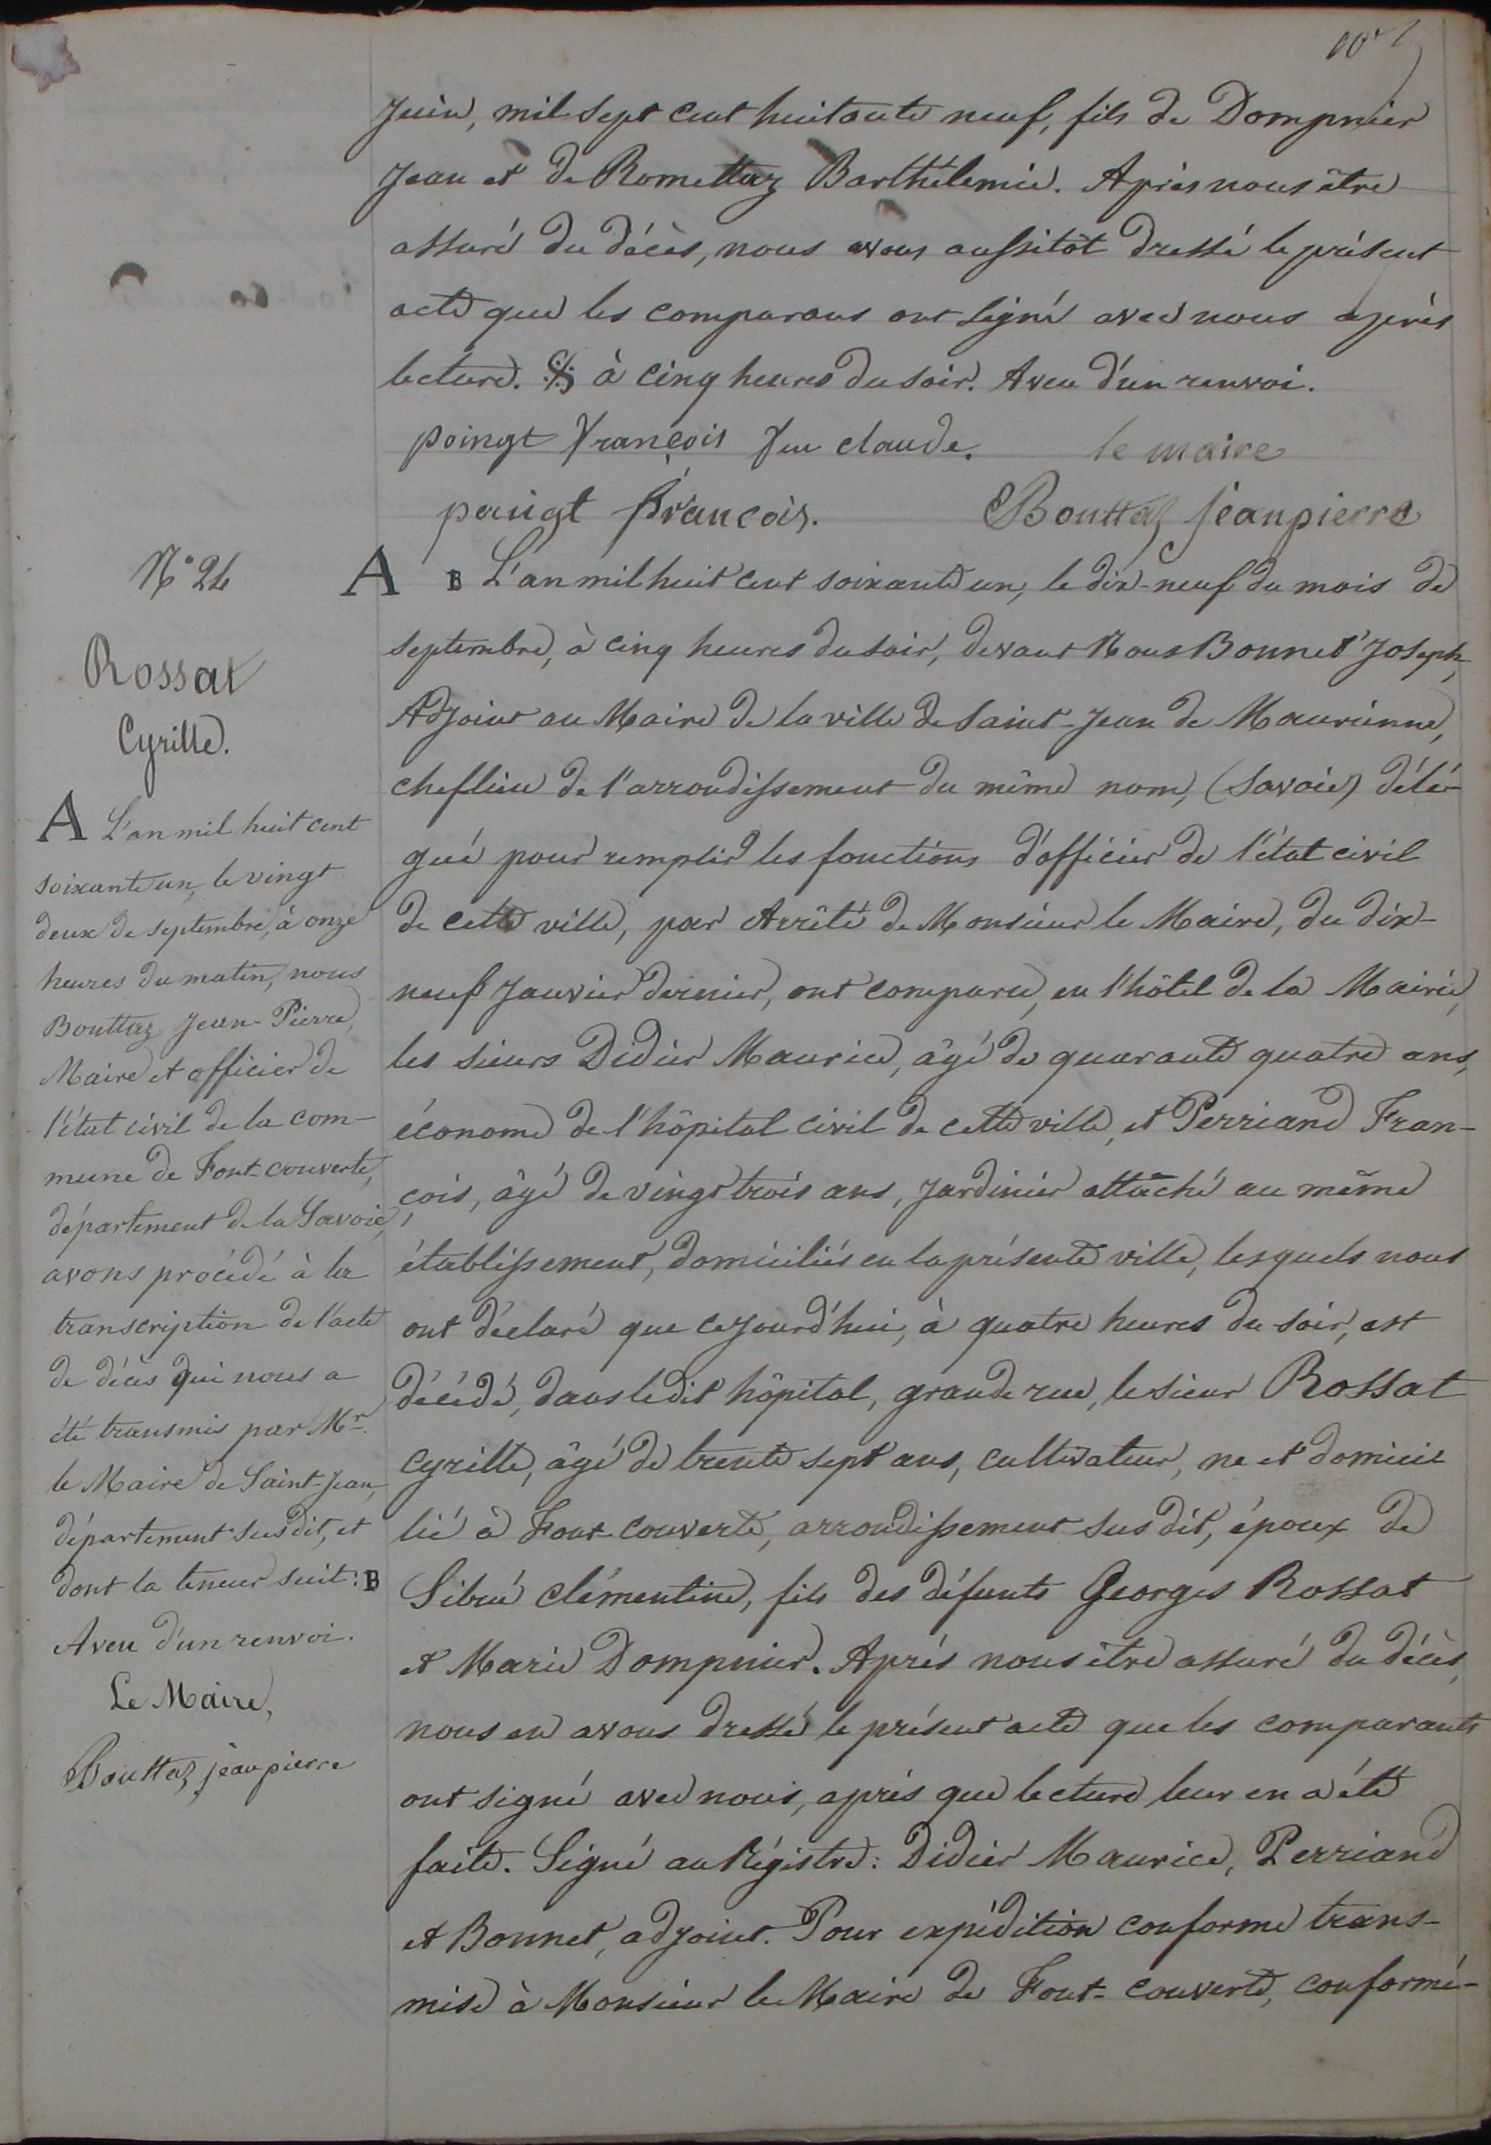 Juin, mil sept cent huitante neuf, fils de Dompnier
Jean et de Romettaz Barthélemie. Après nous être
assuré du décès, nous avons aussitôt dressé le présent
acte que les comparans ont signé avec nous après
lecture. à cinq heures du soir. Aveu d'un renvoi.
poingt françois feu claude. le maire
paingt françois. Bouttaz jeanpierre
N° 24
Rossat
Cyrille.
A L'an mil huit cent
soixante un, le vingt
deux de septembre, à onze
heures du matin, nous
Bouttaz Jean-Pierre,
Maire et officier de
l'état civil de la com-
mune de Font-couverte,
département de la Savoie,
avons procédé à la
transcription de l'acte
de décès qui nous a
été transmis par Mr.
le Maire de Saint-Jean,
département susdit, et
dont la teneur suit: B
Aveu d'un renvoi.
Le Maire,
Bouttaz jeanpierre
A B L'an mil huit cent soixante un, le dix-neuf du mois de
septembre, à cinq heures du soir, devant Nous Bonnet Joseph,
Adjoint au Maire de la ville de Saint-Jean de Maurienne,
cheflieu de l'arrondissement du même nom, (Savoie) délé-
gué pour remplir les fonctions d'officier de l'état civil
de cette ville, par Arrêté de Monsieur le Maire, du dix-
neuf Janvier dernier, ont comparu, en l'hôtel de la Mairie,
les sieurs Didier Maurice, âgé de quarante quatre ans,
économe de l'hôpital civil de cette ville, et Perriand Fran-
çois, âgé de vingt trois ans, Jardinier attaché au même
établissement, domiciliés en la présente ville, lesquels nous
ont déclaré que cejourd'hui, à quatre heures du soir, est
décédé, dans ledit hôpital, grande rue, le sieur Rossat
Cyrille, âgé de trente sept ans, cultivateur, né et domici
lié à Font-couverte, arrondissement susdit, époux de
Sibué clémentine, fils des défunts Georges Rossat
et Marie Dompnier. Après nous être assuré du décès,
nous en avons dressé le présent acte que les comparants
ont signé avec nous, après que lecture leur en a été
faite. Signé au Régistre: Didier Maurice, Perriand
et Bonnet, adjoint. Pour expédition conforme trans-
mise à Monsieur le Maire de Font-couverte, conformé-